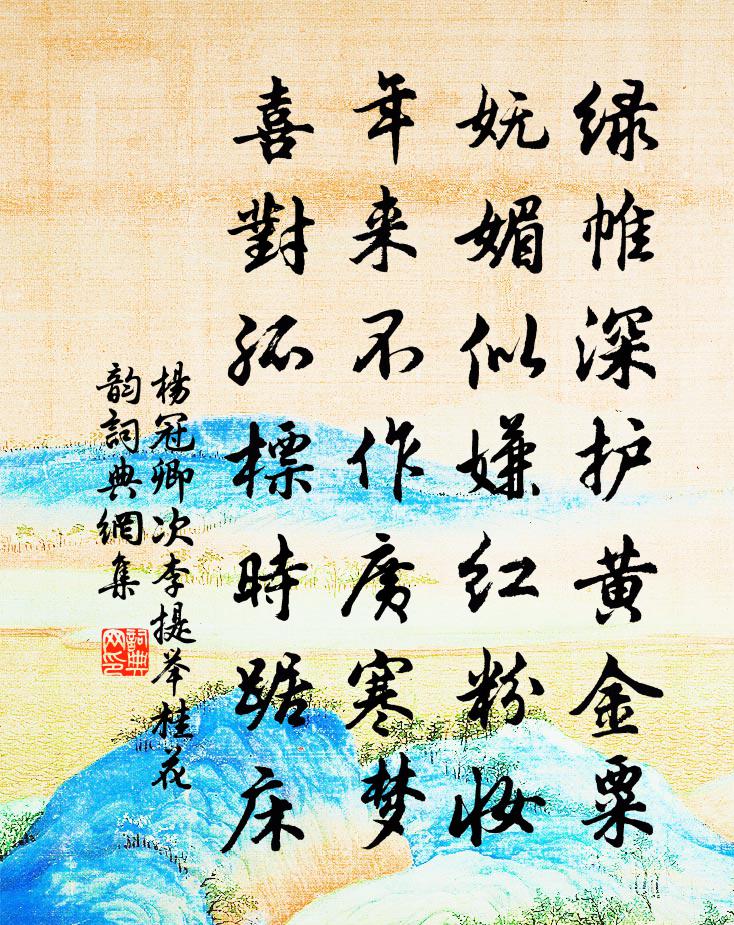 绿帷深护黄金粟
妩媚似嫌红粉妆
年来不作广寒梦
喜對孤標時踞床
楊冠卿次李提举桂花
韵詞典網集
詞典
网印